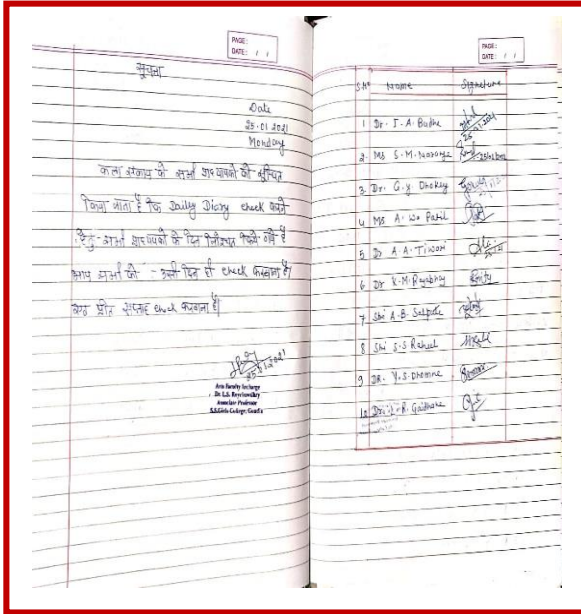 PAGE:
DATE: / /
सूचना
Date
25.01.2021
Monday
कला संकाय के सभी प्राध्यापकों को सूचित
किया जाता है कि Daily Diary check करने
हेतु - सभी प्राध्यापकों के दिन निश्चित किये गये है
आप सभी को - उसी दिन ही check करवाना है।
प्रति सप्ताह check करवाना है।
25.1.2021
Arts Faculty Incharge
Dr. L.S. Roychowdhry
Associate Professor
S.S.Girls College, Gondia
PAGE:
DATE: / /
S.No Name Signature
1 Dr. J. A. Badhe 25.01.2021
2. Ms S. M. 25/01/2021
3. Dr. G. Y. Dhokey
4 Ms A. W. Patil
5 Dr A. A. Tiwari
6 Dr K. M.
7 Shri A. B. Satpute
8 Shri S. S. Rahul
9 DR. Y. S. Dhomne
10 R. Gaidhane